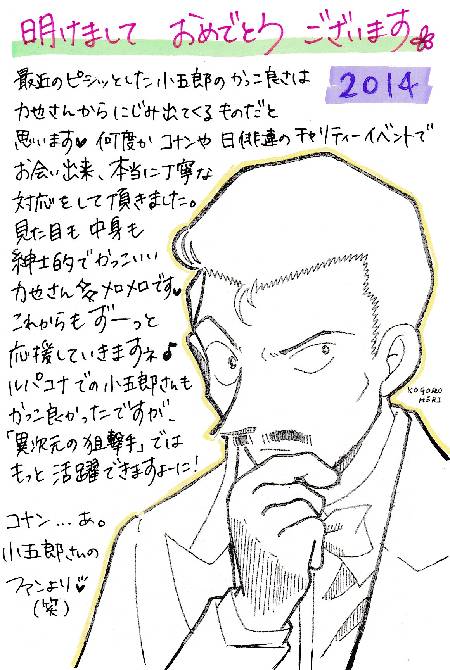 明けまして おめでとう ございます
2014
最近のピシッとした小五郎のかっこ良さは
力也さんからにじみ出てくるものだと
思います♥ 何度か コナンや 日俳連の チャリティーイベントで
お会い出来、本当に丁寧な
対応をして頂きました。
見た目も中身も
紳士的でかっこいい
力也さんにメロメロです♥
これからも ずーっと
応援していきますネ♪
ルパコナでの小五郎さんも
かっこ良かったですが、
「異次元の狙撃手」では
もっと活躍できますよーに!
コナン…あ。
小五郎さんの
ファンより♥
(笑)
KOGORO
MŌRI